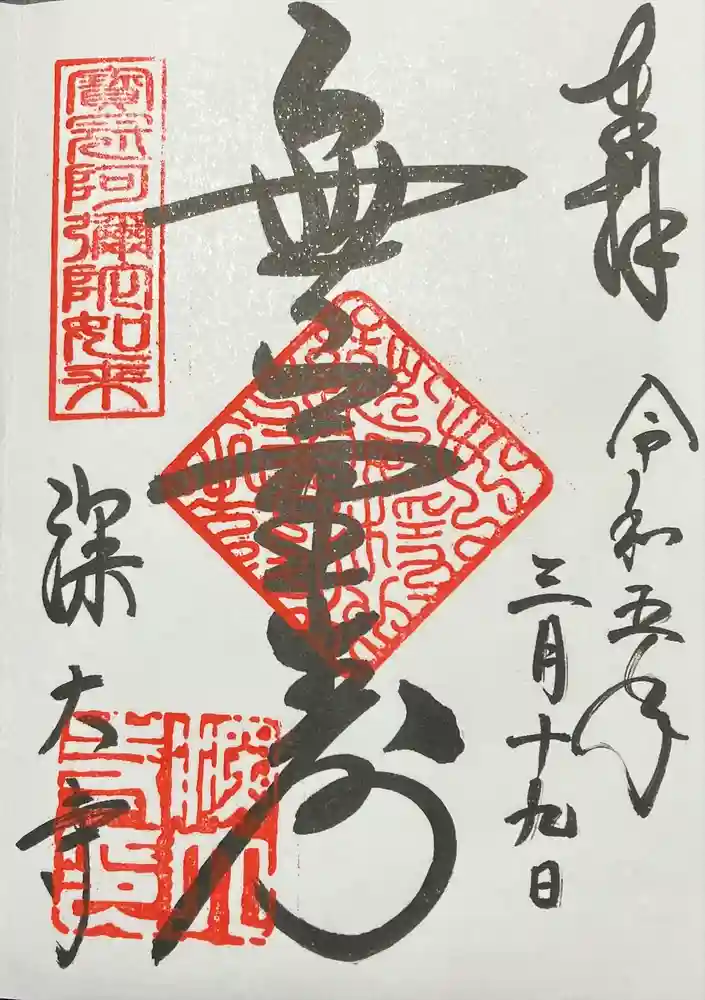 奉拝
令和五年
三月十九日
無量寿
寳冠阿彌陀如来
深大寺